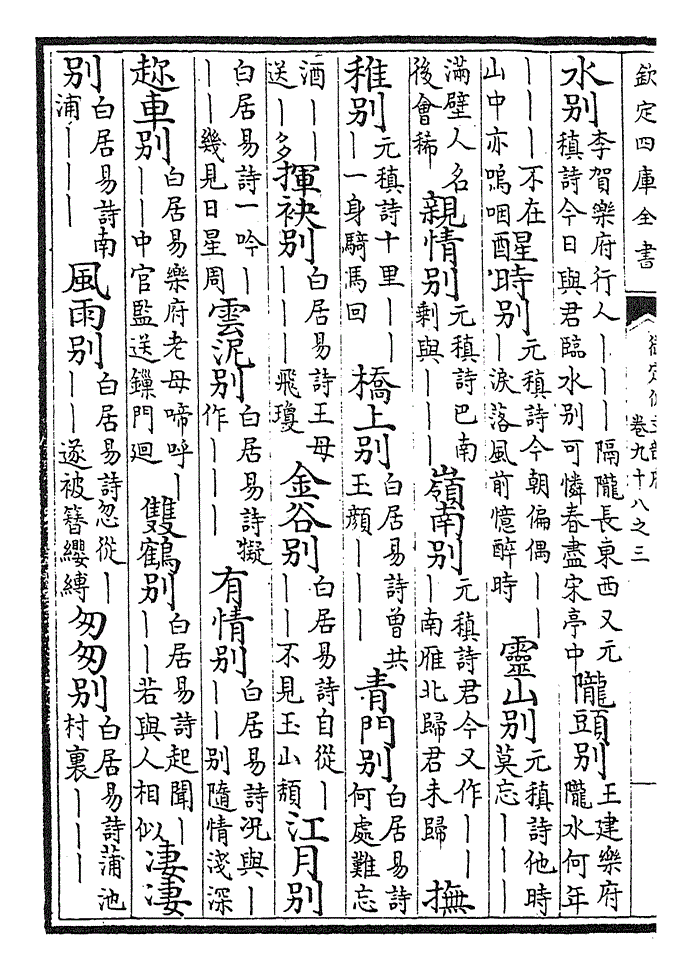 欽定四庫全書
卷九十八之三
水别李賀樂府行人｜｜｜隔隴長東西又元稹詩今日與君臨水别可憐春盡宋亭中 隴頭别王建樂府隴水何年
｜｜｜不在山中亦嗚咽 醒時别元稹詩今朝偏偶｜｜｜淚落風前憶醉時 靈山别元稹詩他時莫忘｜｜｜
滿壁人名後會稀 親情别元稹詩巴南剩與｜｜｜ 嶺南别元稹詩君今又作｜｜｜南雁北歸君未歸 撫
稚别元稹詩十里｜｜｜一身騎馬回 橋上别白居易詩曾共玉顔｜｜｜ 青門别白居易詩何處難忘
酒｜｜送｜多 揮袂别白居易詩王母｜｜｜飛瓊 金谷别白居易詩自從｜｜｜不見玉山頽 江月别
白居易詩一吟｜｜｜幾見日星周 雲泥别白居易詩擬作｜｜｜ 有情别白居易詩況與｜｜｜别隨情淺深
趂車别白居易樂府老母啼呼｜｜｜中官監送鏁門廻 雙鶴别白居易詩起聞｜｜｜若與人相似 凄凄
别白居易詩南浦｜｜｜ 風雨别白居易詩忽從｜｜｜遂被簪纓縛 匆匆别白居易詩蒲池村裏｜｜｜